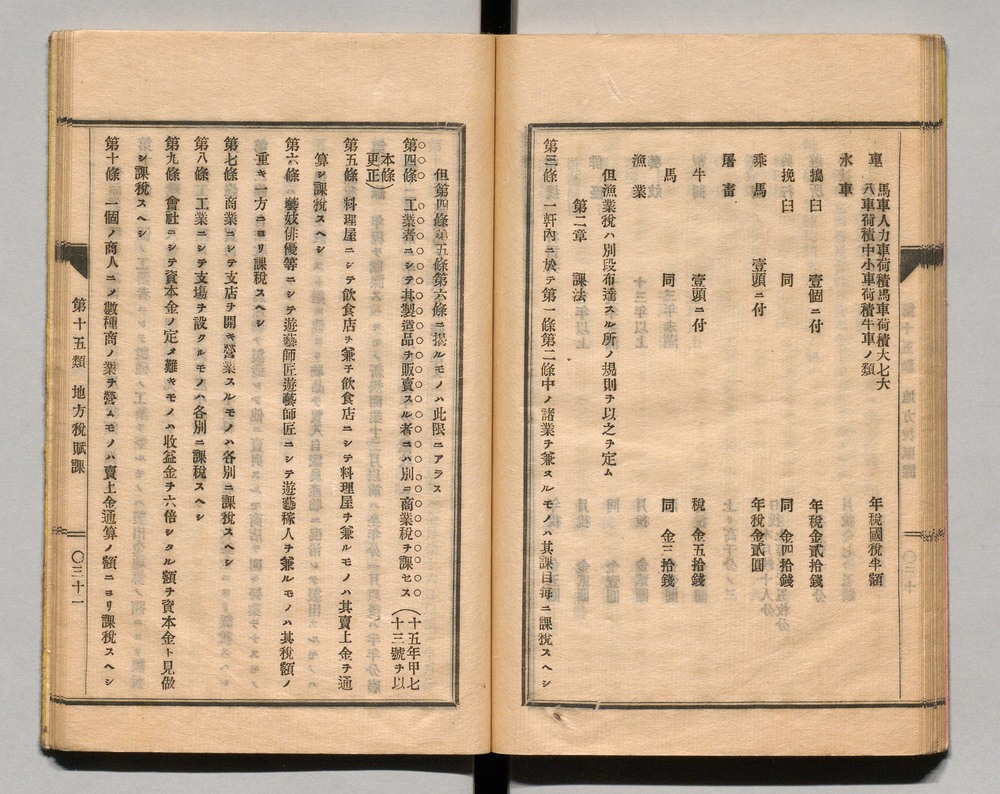 車 馬車人力車荷積馬車荷積大七大八車荷積中小車荷積牛車ノ類 年税國税半額
水車
一搗臼 壹個ニ付 年税金貳拾錢
一挽臼 同 同 金四拾錢
乘馬 壹頭ニ付 年税金貳圓
屠畜
一牛 壹頭ニ付 税 金五拾錢
一馬 同 同 金三拾錢
漁業
但漁業税ハ別段布達スル所ノ規則ヲ以之ヲ定ム
第二章 課法
第三條 一軒內ニ於テ第一條第二條中ノ諸業ヲ兼スルモノハ其課目每ニ課税スヘシ
但第四條第五條第六條ニ揭ルモノハ此限ニアラス
第四條 工業者ニシテ其製造品ヲ販賣スル者ニハ別ニ商業税ヲ課セス(十五年甲七十三號ヲ以
本條更正)
第五條 料理屋ニシテ飲食店ヲ兼子飲食店ニシテ料理屋ヲ兼ルモノハ其賣上金ヲ通
算シ課税スヘシ
第六條 藝妓俳優等ニシテ遊藝師匠遊藝師匠ニシテ遊藝稼人ヲ兼ルモノハ其税額ノ
重キ一方ニヨリ課税スヘシ
第七條 商業ニシテ支店ヲ開キ營業スルモノハ各別ニ課税スヘシ
第八條 工業ニシテ支場ヲ設クルモノハ各別ニ課税スヘシ
第九條 會社ニシテ資本金ノ定メ難キモノハ收益金ヲ六倍シタル額ヲ資本金ト見做
シ課税スヘシ
第十條 一個ノ商人ニメ數種商ノ業ヲ營ムモノハ賣上金通算ノ額ニヨリ課税スヘシ
第十五類 地方税賦課 〇三十一